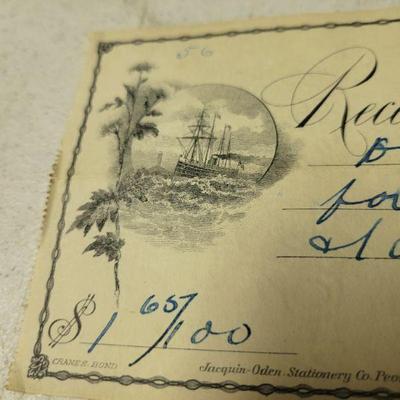 56
Rec
for
$ 1 65/100
CRANE'S BOND
Jacquin-Oden Stationery Co. Peo